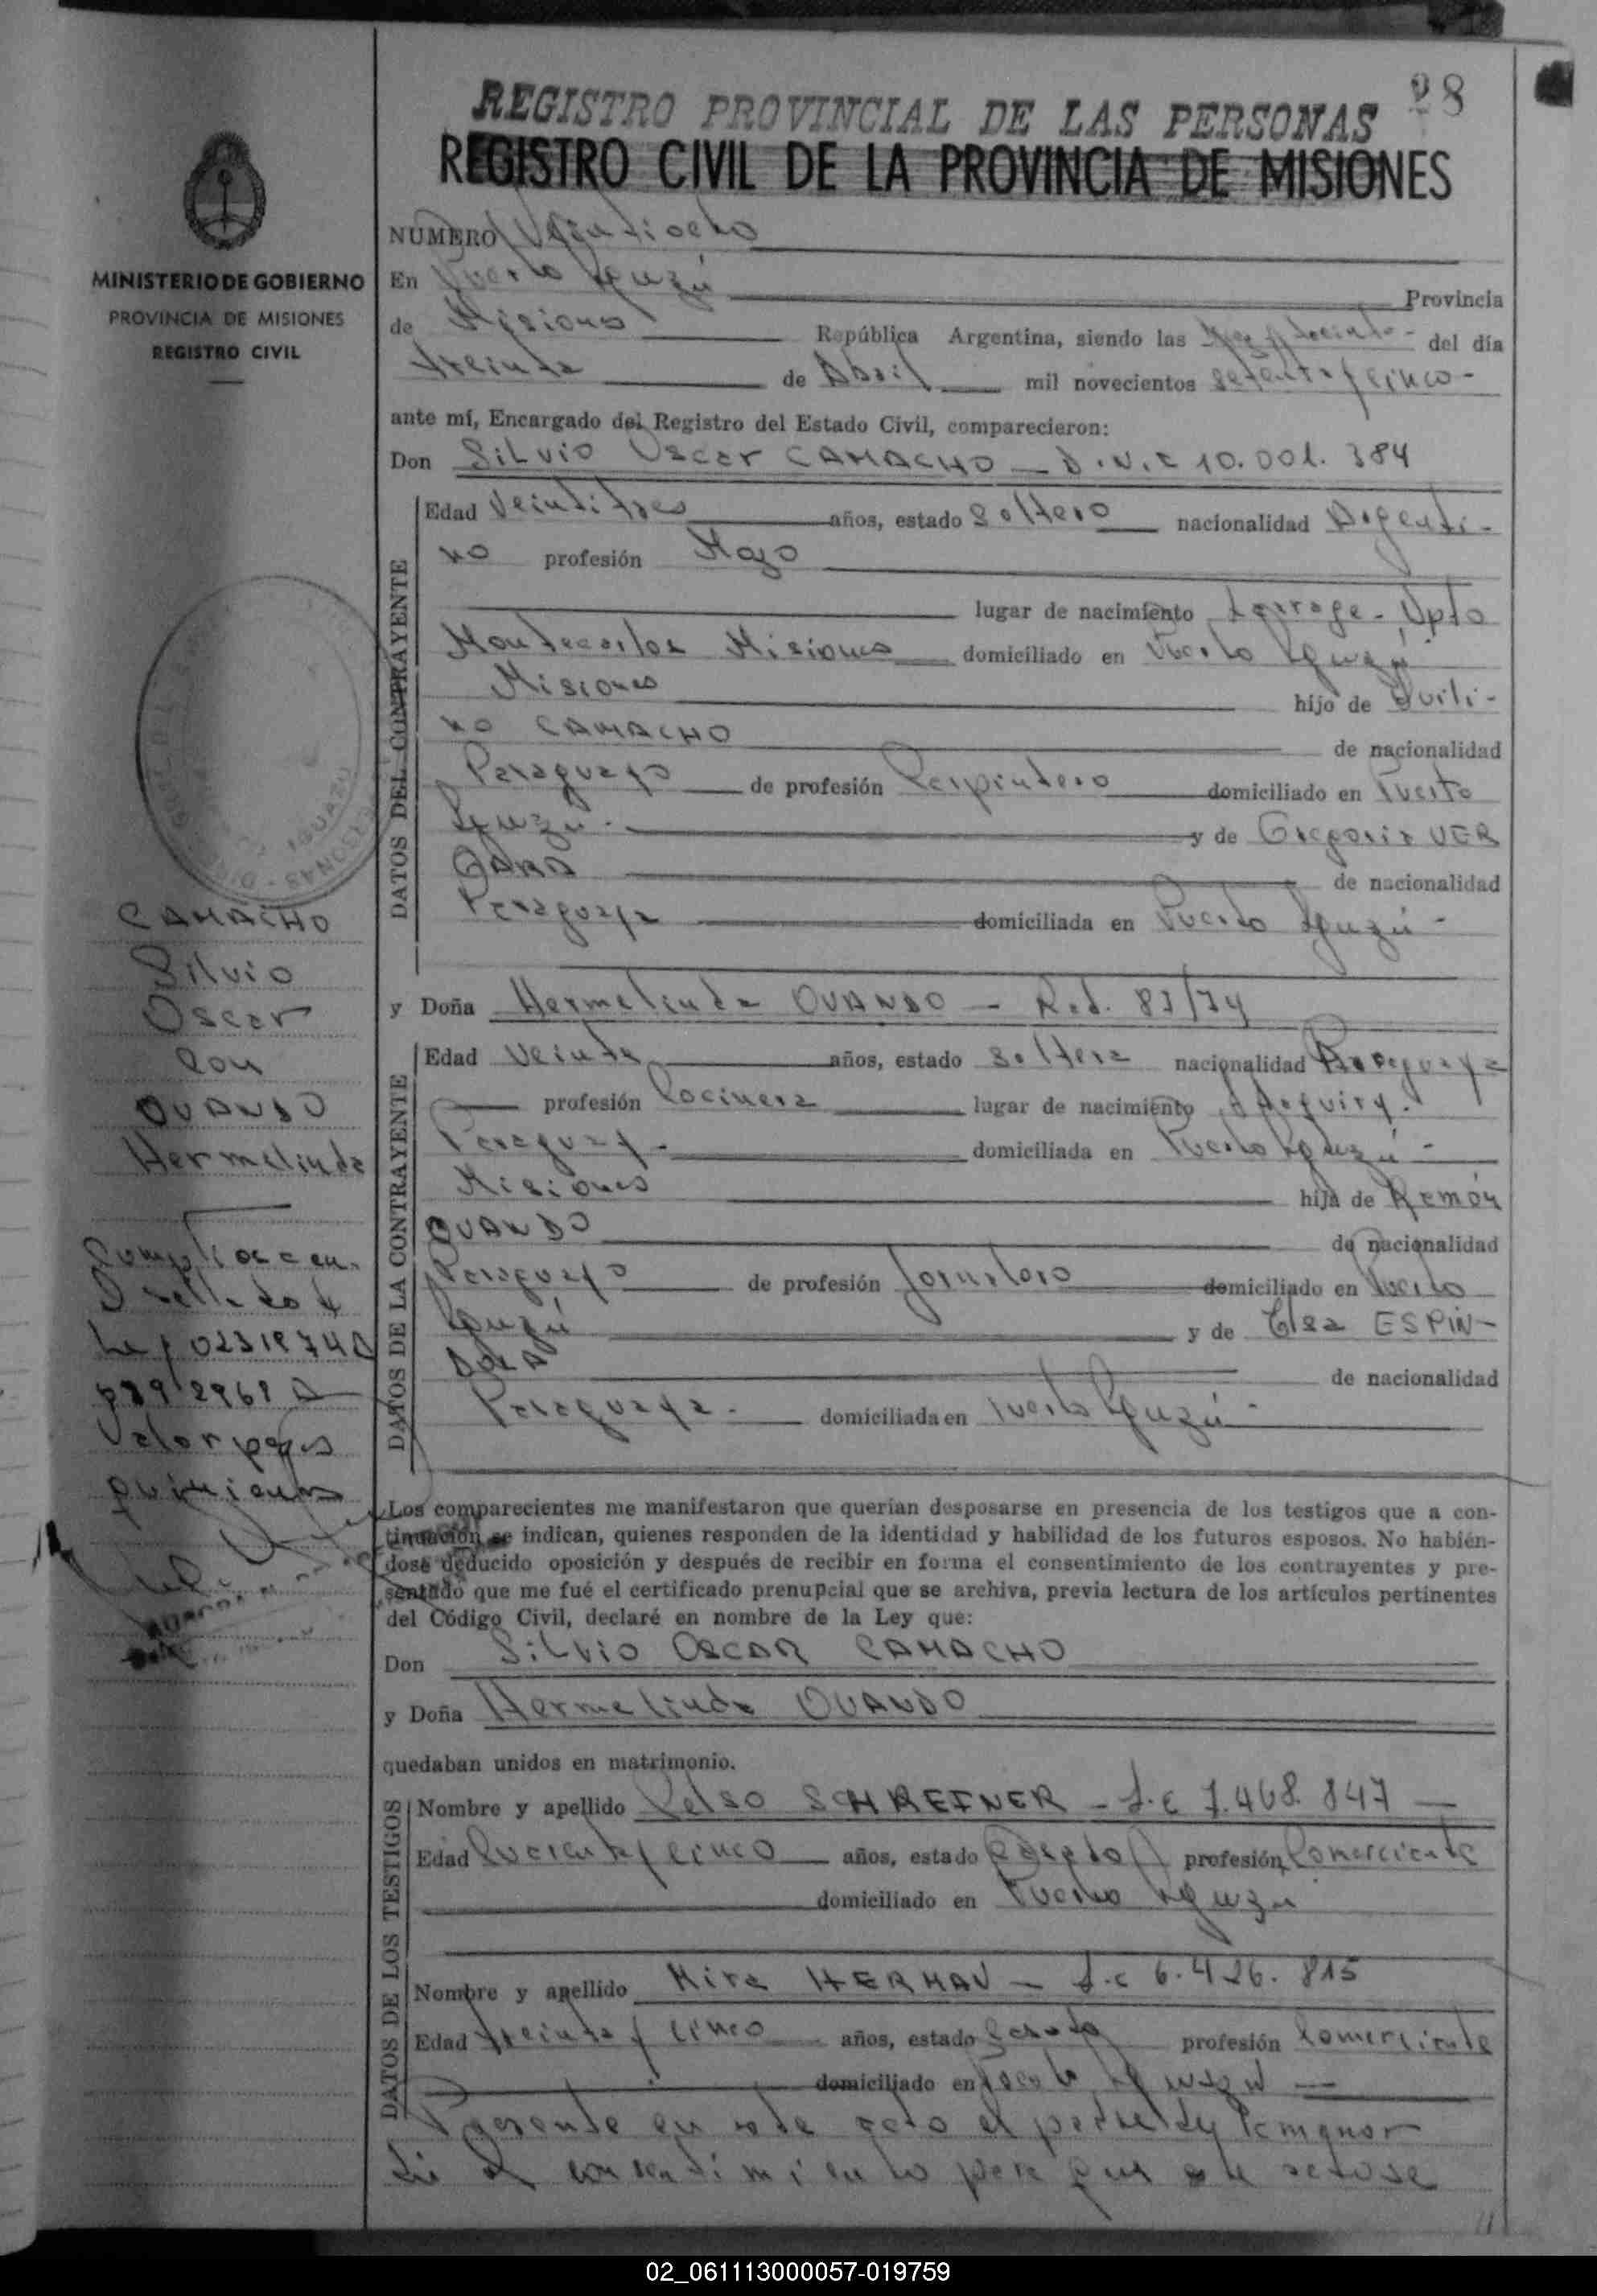 28
REGISTRO PROVINCIAL DE LAS PERSONAS
REGISTRO CIVIL DE LA PROVINCIA DE MISIONES
MINISTERIO DE GOBIERNO
PROVINCIA DE MISIONES
REGISTRO CIVIL
NUMERO Veintiocho
En Puerto Iguazú Provincia
de Misiones República Argentina, siendo las del día
treinta de Abril mil novecientos setenta y cinco-
ante mí, Encargado del Registro del Estado Civil, comparecieron:
Don Silvio Oscar CAMACHO - D.N.I 10.001.384
DATOS DEL CONTRAYENTE
Edad Veintitres años, estado Soltero nacionalidad Argenti-
no profesión Mozo
lugar de nacimiento Dpto
Montecarlos Misiones domiciliado en Puerto Iguazú
Misiones hijo de Quili-
no CAMACHO de nacionalidad
Paraguayo de profesión Carpintero domiciliado en Puerto
Iguazú. y de Gregoria VER
GARA de nacionalidad
Paraguaya domiciliada en Puerto Iguazú-
y Doña Hermelinda OVANDO - 87/74
DATOS DE LA CONTRAYENTE
Edad Veinte años, estado Soltera nacionalidad Paraguaya
profesión Cocinera lugar de nacimiento
Paraguay- domiciliada en Puerto Iguazú-
Misiones hija de Ramón
OVANDO de nacionalidad
Paraguayo de profesión Jornalero domiciliado en Puerto
Iguazú y de Elsa ESPIN-
DOLA de nacionalidad
Paraguaya- domiciliada en Puerto Iguazú-
Los comparecientes me manifestaron que querían desposarse en presencia de los testigos que a con-
tinuación se indican, quienes responden de la identidad y habilidad de los futuros esposos. No habién-
dose deducido oposición y después de recibir en forma el consentimiento de los contrayentes y pre-
sentado que me fué el certificado prenupcial que se archiva, previa lectura de los artículos pertinentes
del Código Civil, declaré en nombre de la Ley que:
Don Silvio OSCAR CAMACHO
y Doña Hermelinda OVANDO
quedaban unidos en matrimonio.
DATOS DE LOS TESTIGOS
Nombre y apellido Celso SCHREINER - L.E 7.468.847
Edad Cuarenta y cinco años, estado Casado profesión Comerciante
domiciliado en Puerto Iguazú
Nombre y apellido Mira HERMAN - L.C 6.426.815
Edad treinta y cinco años, estado Casada profesión Comerciante
domiciliado en Puerto Iguazú
Presente en este acto el padre de la menor
dió el consentimiento para que
CAMACHO
Silvio
Oscar
con
OVANDO
Hermelinda
Valor pesos
quinientos
02_061113000057-019759